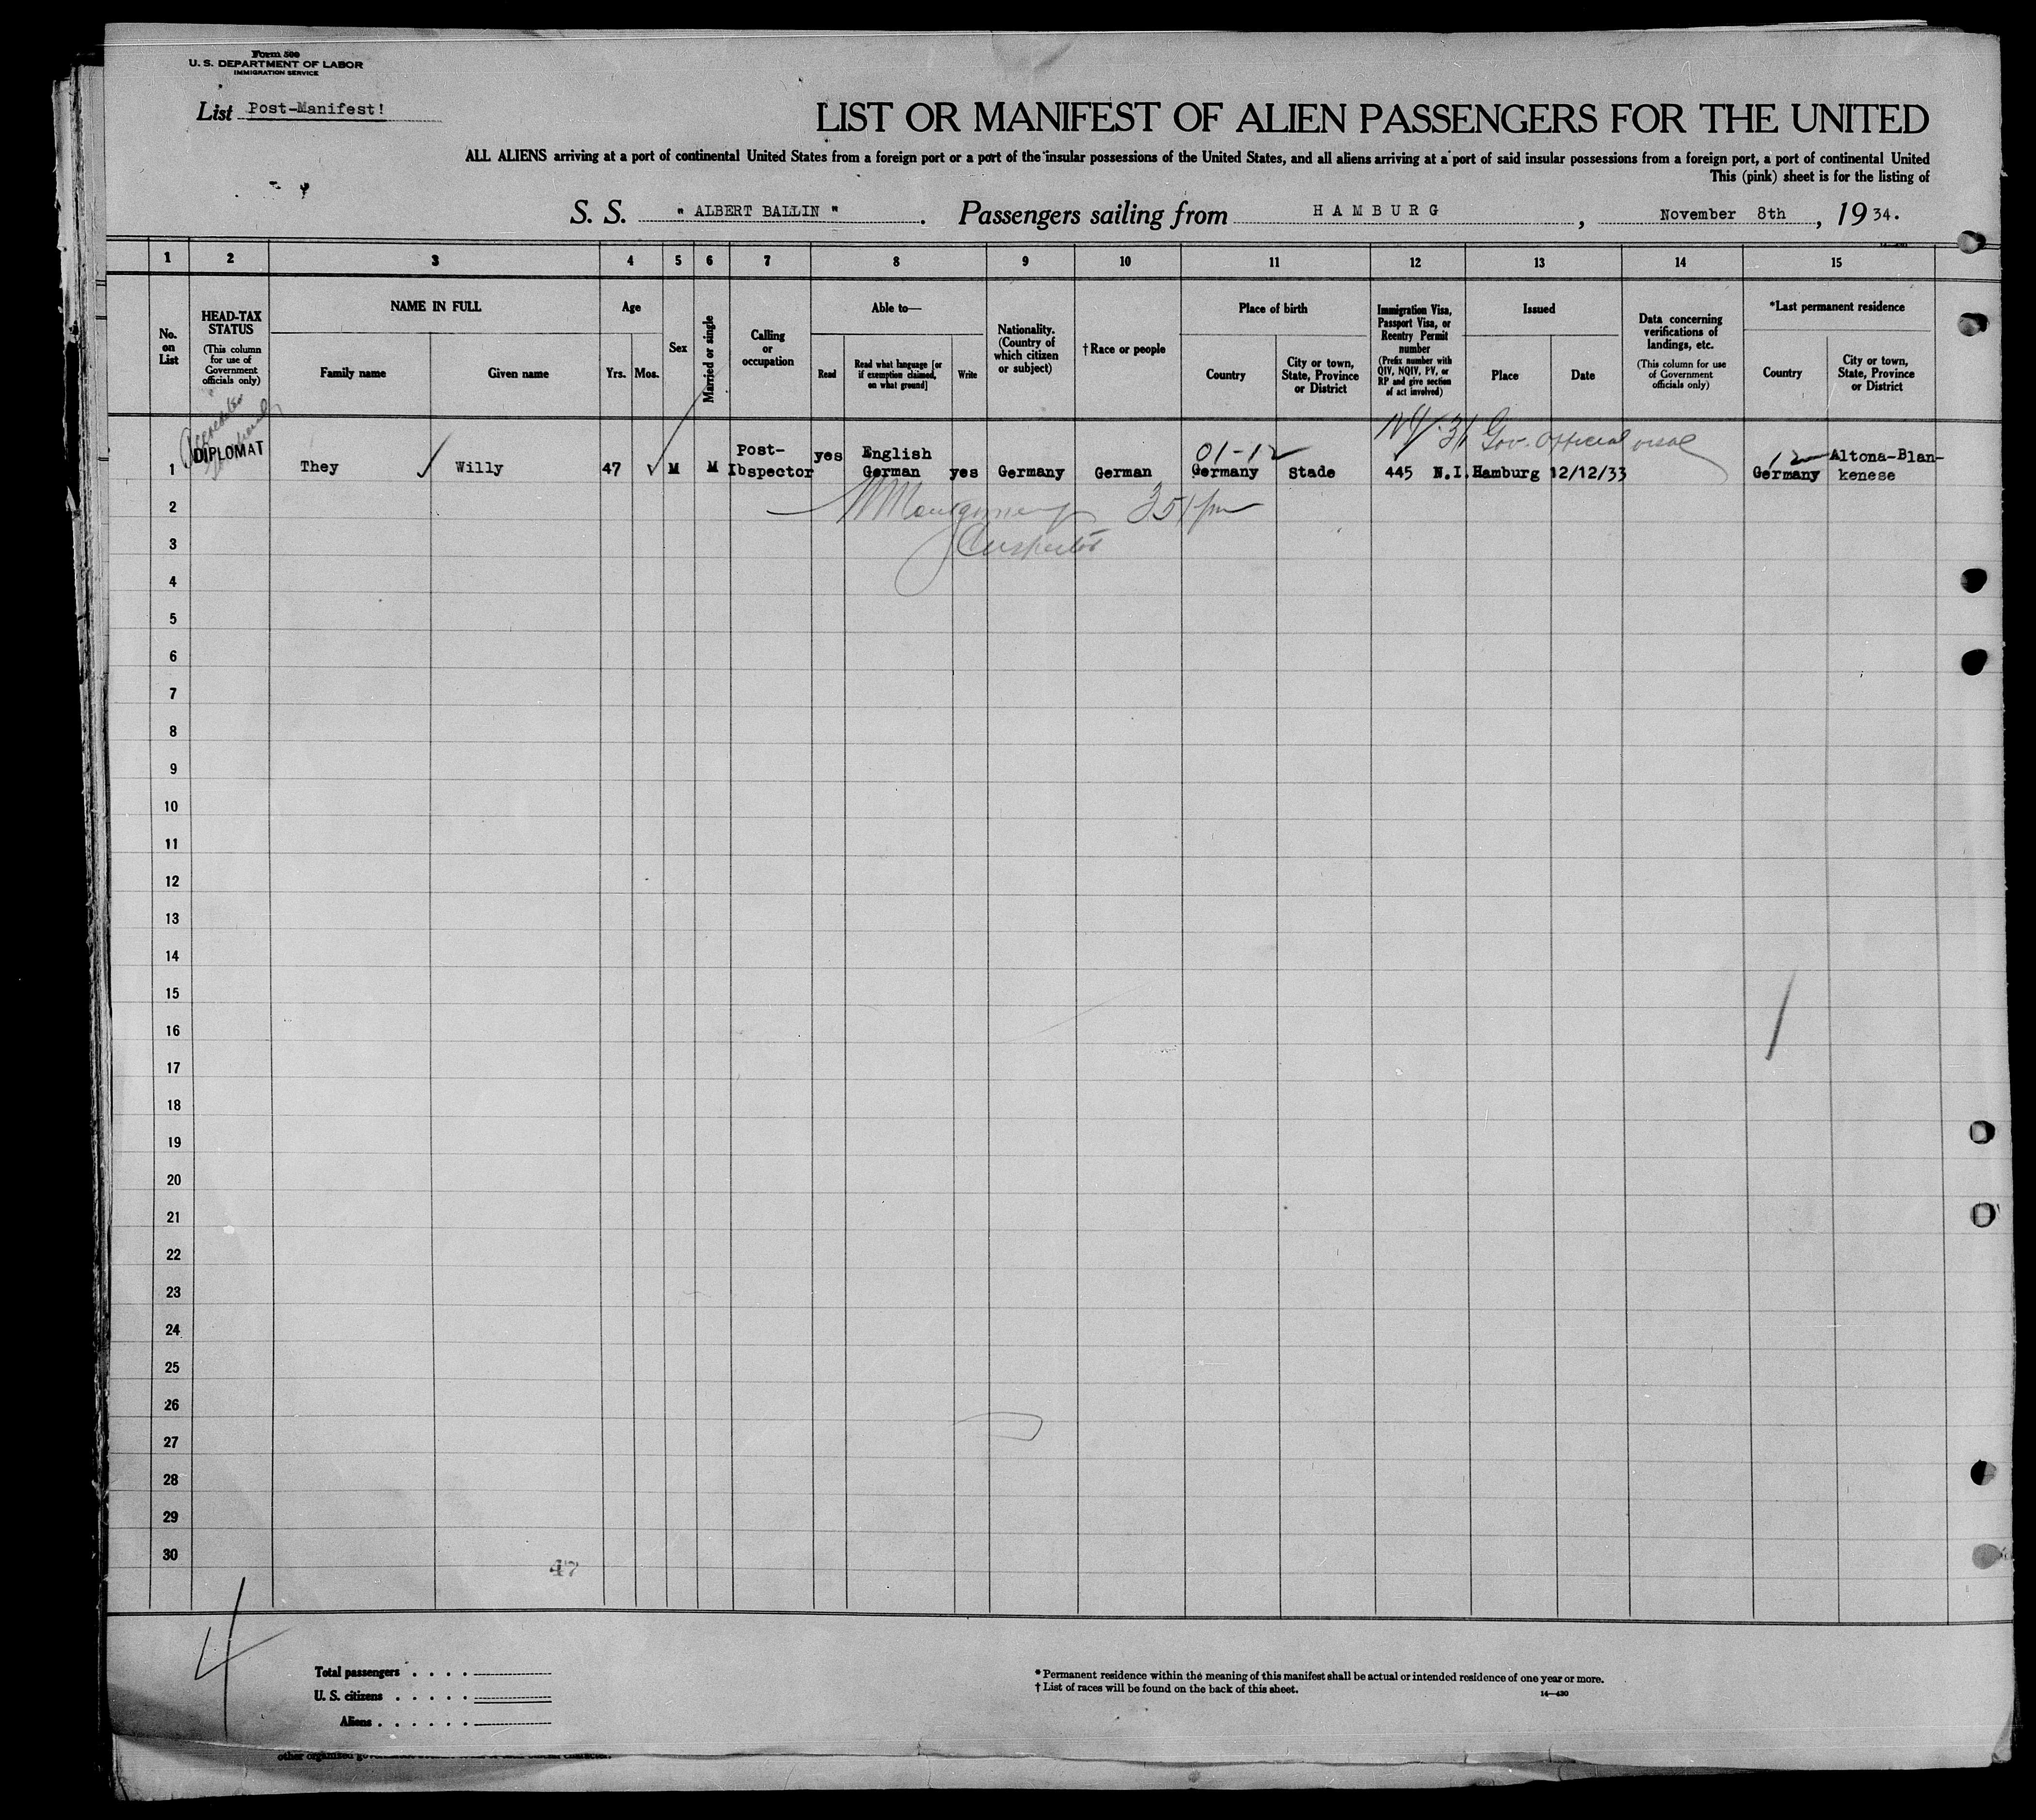 Form 500
U. S. DEPARTMENT OF LABOR
IMMIGRATION SERVICE
List Post-Manifest!
LIST OR MANIFEST OF ALIEN PASSENGERS FOR THE UNITED
ALL ALIENS arriving at a port of continental United States from a foreign port or a port of the insular possessions of the United States, and all aliens arriving at a port of said insular possessions from a foreign port, a port of continental United
This (pink) sheet is for the listing of
S. S. " ALBERT BALLIN " . Passengers sailing from HAMBURG , November 8th , 19 34.
14—430
1 2 3 4 5 6 7 8 9 10 11 12 13 14 15
No. on List
HEAD-TAX STATUS
(This column for use of Government officials only)
NAME IN FULL
Family name Given name
Age
Yrs. Mos.
Sex
Married or single
Calling or occupation
Able to—
Read
Read what language [or if exemption claimed, on what ground]
Write
Nationality. (Country of which citizen or subject)
†Race or people
Place of birth
Country
City or town, State, Province or District
Immigration Visa, Passport Visa, or Reentry Permit number
(Prefix number with QIV, NQIV, PV, or RP and give section of act involved)
Issued
Place Date
Data concerning verifications of landings, etc.
(This column for use of Government officials only)
*Last permanent residence
Country
City or town, State, Province or District
Gov. Official visa
01-12
12
1 DIPLOMAT They Willy 47 M M Post-Ibspector yes English German yes Germany German Germany Stade 445 N.I. Hamburg 12/12/33 Germany Altona-Blankenese
2 Montgomery 351 pm
3 Inspector
4
5
6
7
8
9
10
11
12
13
14
15
16
17
18
19
20
21
22
23
24
25
26
27
28
29
30
47
4
Total passengers
U. S. citizens
Aliens
* Permanent residence within the meaning of this manifest shall be actual or intended residence of one year or more.
† List of races will be found on the back of this sheet.
14—430